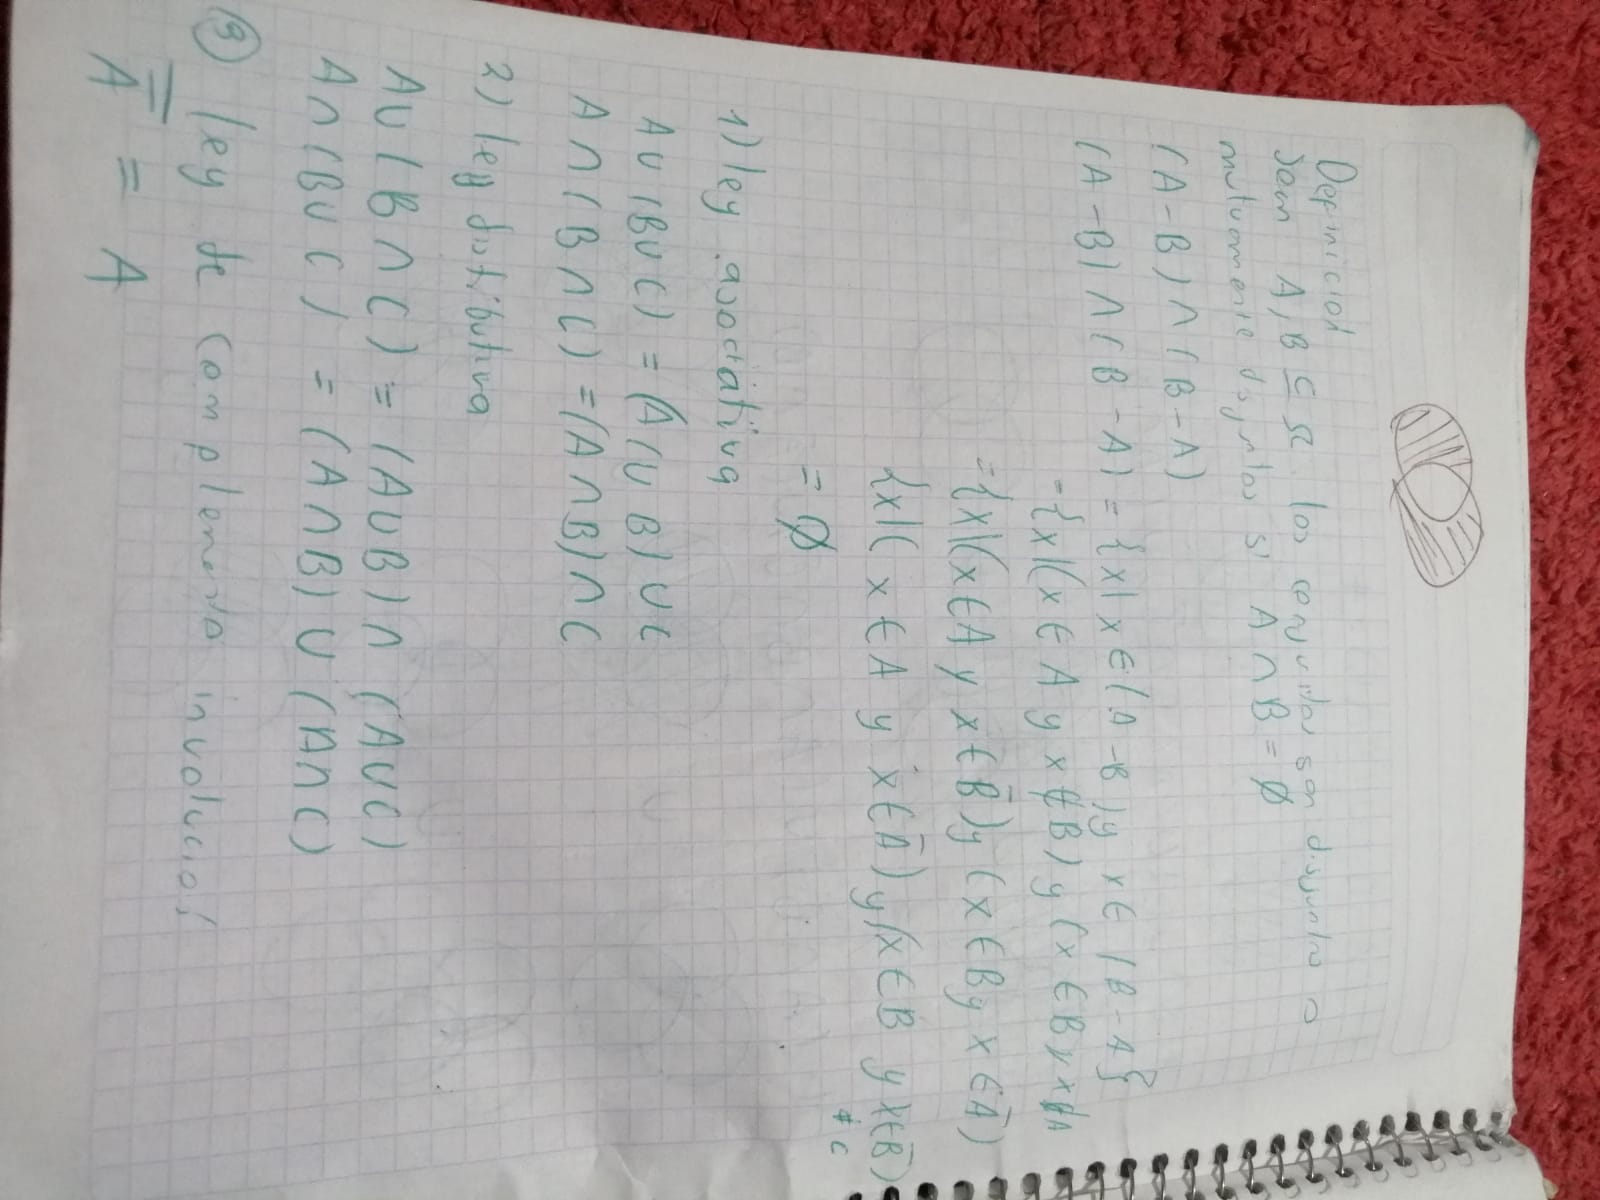 Definición
Sean A, B ⊆ Ω los conjuntos son disjuntos o
mutuamente disjuntos si A ∩ B = ∅
(A - B) ∩ (B - A)
(A - B) ∩ (B - A) = {x | x ∈ (A - B) y x ∈ (B - A}
= {x | (x ∈ A y x ∉ B) y (x ∈ B y x ∉ A
= {x | (x ∈ A y x ∈ B̅) y (x ∈ B y x ∈ A̅)
{x | ( x ∈ A y x ∈ A̅) y (x ∈ B y x ∈ B̅)
= ∅
1) ley asociativa
A ∪ (B ∪ C) = (A ∪ B) ∪ C
A ∩ (B ∩ C) = (A ∩ B) ∩ C
2) ley distributiva
A ∪ (B ∩ C) = (A ∪ B) ∩ (A ∪ C)
A ∩ (B ∪ C) = (A ∩ B) ∪ (A ∩ C)
3) ley de complemento involució
A̿ = A